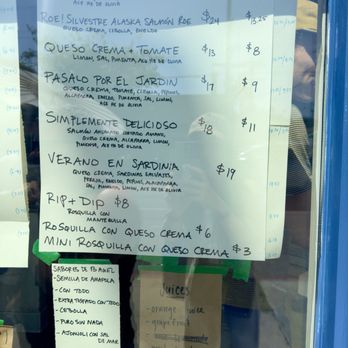 ROE! SILVESTRE ALASKA SALMON ROE $24
QUESO CREMA, CEBOLLA, ENELDO
QUESO CREMA + TOMATE $13 $8
LIMON, SAL, PIMENTA, ACEITE DE OLIVA
PASALO POR EL JARDIN $17 $9
QUESO CREMA, TOMATE, CEBOLLA, PEPINO,
ALCAPARRA, ENELDO, PIMENTA, SAL, LIMON,
ACEITE DE OLIVA
SIMPLEMENTE DELICIOSO $18 $11
SALMON AHUMADO
QUESO CREMA, ALCAPARRA, LIMON,
PIMENTA, ACEITE DE OLIVA
VERANO EN SARDINIA $19
QUESO CREMA, SARDINAS SALVAJES,
PEREJIL, ENELDO, PEPINO, ALCAPARRA
SAL, PIMENTA, LIMON, ACEITE DE OLIVA
RIP + DIP $8
ROSQUILLA CON
MANTEQUILLA
ROSQUILLA CON QUESO CREMA $6
MINI ROSQUILLA CON QUESO CREMA $3
SABORES DE
- SEMILLA DE AMAPOLA
- CON TODO
- EXTRA TOSTADO CON TODO
- CEBOLLA
- PURO SIN NADA
- AJONJOLI CON SAL
DE MAR
Juices
- orange juice
- grapefruit